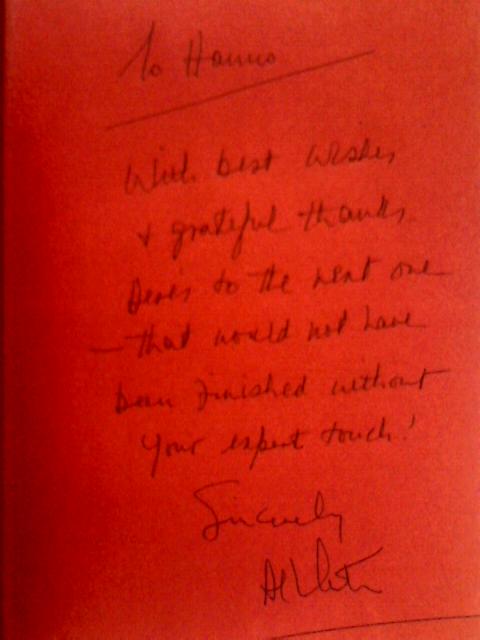 To Hanno
With best wishes
+ grateful thanks.
Here's to the next one
— that would not have
been finished without
your expert touch!
Sincerely
Al